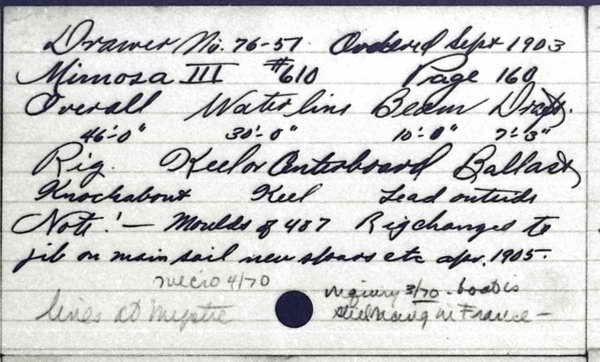 Drawer No. 76-51. Ordered Sept 1903
Mimosa III #610 Page 160
Overall Waterline Beam Draft.
46'-0" 30'-0" 10'-0" 7'-3"
Rig. Keel or Centerboard Ballast
Knockabout Keel Lead outside
Note! - Moulds of 487 Rig changes to
jib on main sail new spars etc apr. 1905.
micro 4/70
inquiry 3/70 - boat is
lines at Mystic
still sailing in France -